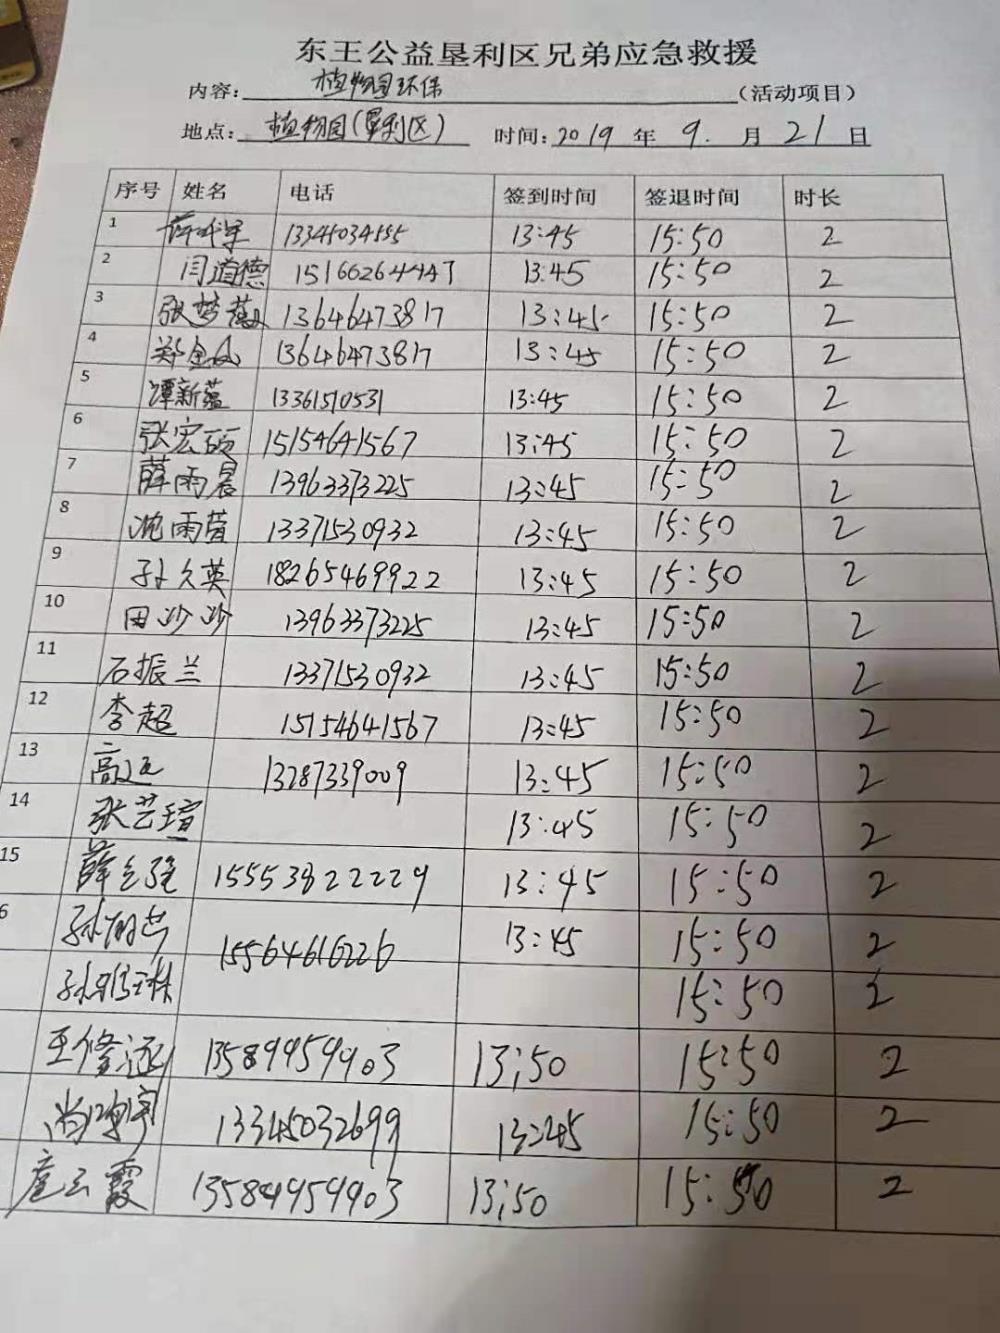 东王公益垦利区兄弟应急救援
内容: 植物园环保 (活动项目)
地点: 植物园(垦利区) 时间: 2019 年 9. 月 21 日
序号 姓名 电话 签到时间 签退时间 时长
1 13345034555 13:45 15:50 2
2 闫道德 15166264447 13:45 15:50 2
3 张梦薇 13646473817 13:45 15:50 2
4 郑金 13646473817 13:45 15:50 2
5 谭新蕴 13361510531 13:45 15:50 2
6 张宏硕 15154641567 13:45 15:50 2
7 薛雨晨 13963373225 13:45 15:50 2
8 雨萱 13371530932 13:45 15:50 2
9 孙久英 18265469922 13:45 15:50 2
10 田沙沙 13963373225 13:45 15:50 2
11 石振兰 13371530932 13:45 15:50 2
12 李超 15154641567 13:45 15:50 2
13 高远 13287339009 13:45 15:50 2
14 张艺瑄 13:45 15:50 2
15 薛 强 15553822229 13:45 15:50 2
6 孙 15564616226 13:45 15:50 2
孙 琳 15:50 2
王修涵 13589959903 13;50 15:50 2
尚 宇 13345032699 13:45 15:50 2
扈云霞 13589959903 13;50 15:50 2